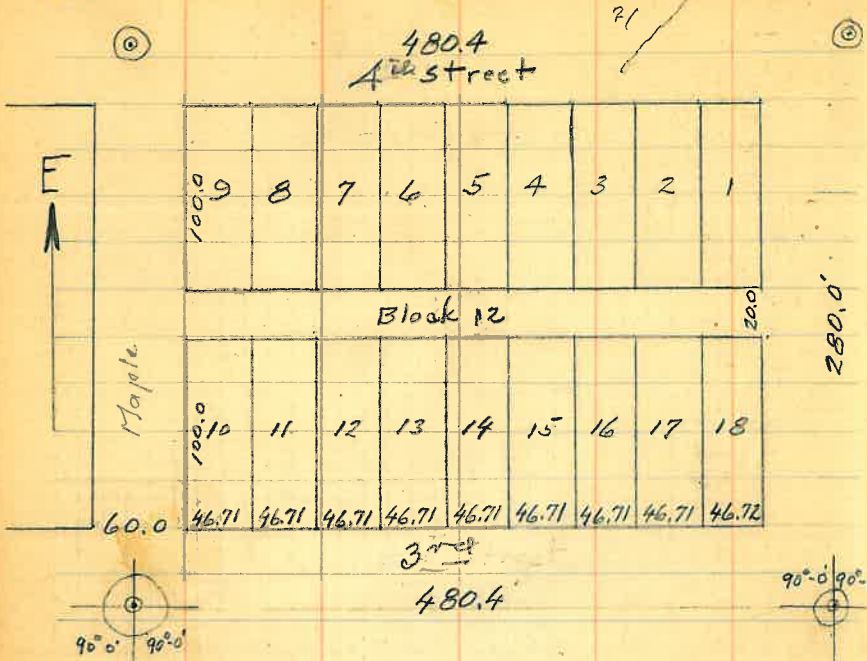 71
480.4
4th street
E
100.0
9 8 7 6 5 4 3 2 1
Block 12
20.0
280.0'
Maple
100.0
10 11 12 13 14 15 16 17 18
60.0
46.71 46.71 46.71 46.71 46.71 46.71 46.71 46.71 46.72
3rd
480.4
90°0' 90°-0'
90°-0' 90°-